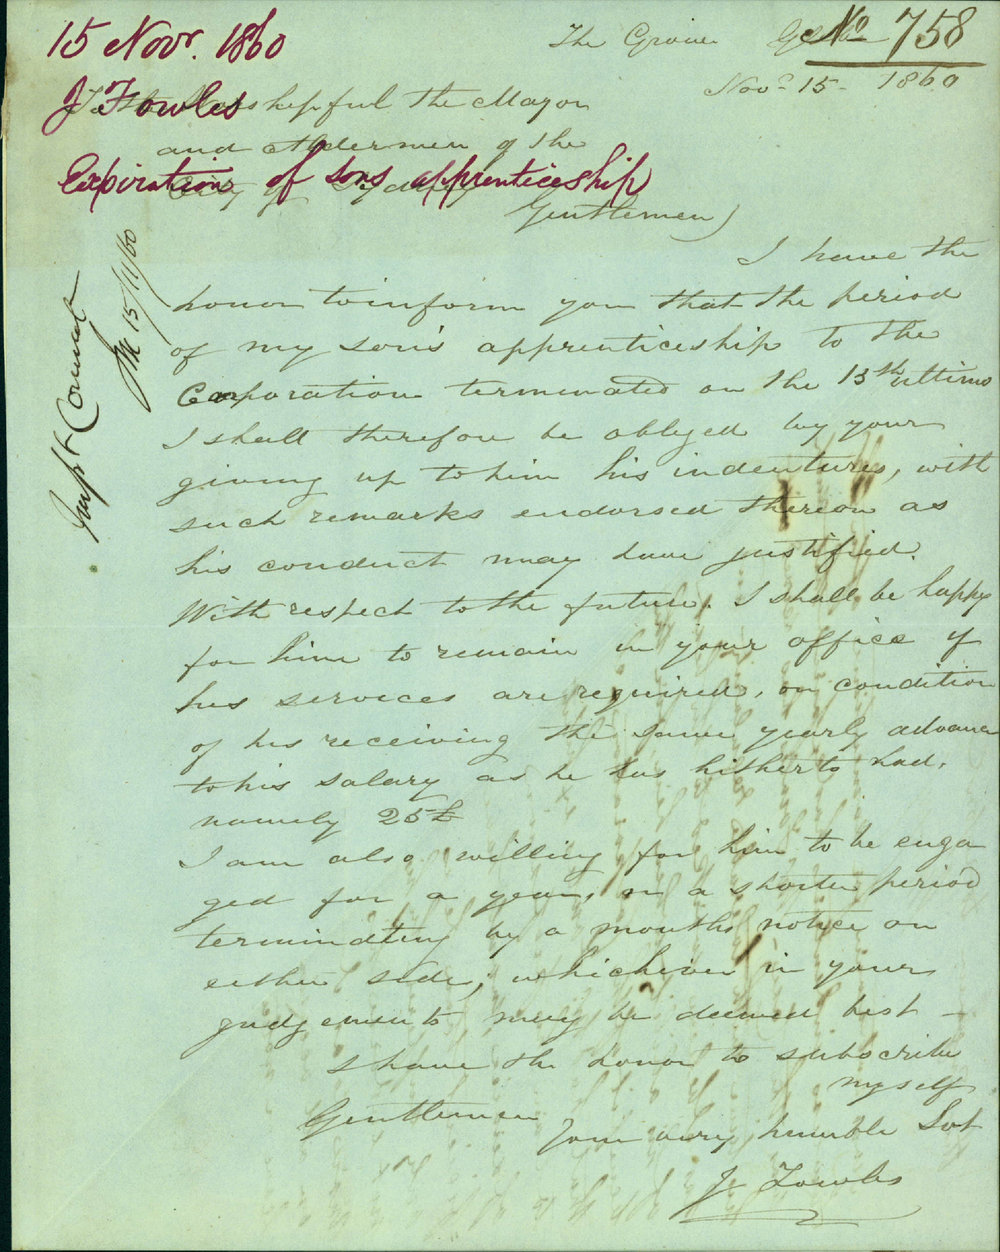 15 Novr. 1860
J Fowles
Expiration of sons apprenticeship
No 758
The Grove
Novr 15 - 1860
To the Worshipful the Mayor
and Aldermen of the
City of Sydney
Gentlemen)
I have the
honor to inform you that the period
of my son's apprenticeship to the
Corporation terminated on the 13th ultimo
I shall therefore be obliged by your
giving up to him his indentures, with
such remarks endorsed thereon as
his conduct may have justified.
With respect to the future. I shall be happy
for him to remain in your office if
his services are required, on condition
of his receiving the same yearly advance
to his salary as he has hitherto had,
namely 25£
I am also willing for him to be enga
ged for a year, or a shorter period
terminating by a months notice on
either side; whichever in your
judgements may be deemed best -
I have the honor to subscribe
myself
Gentlemen
Your very humble Svt
J. Fowles
15/11/60